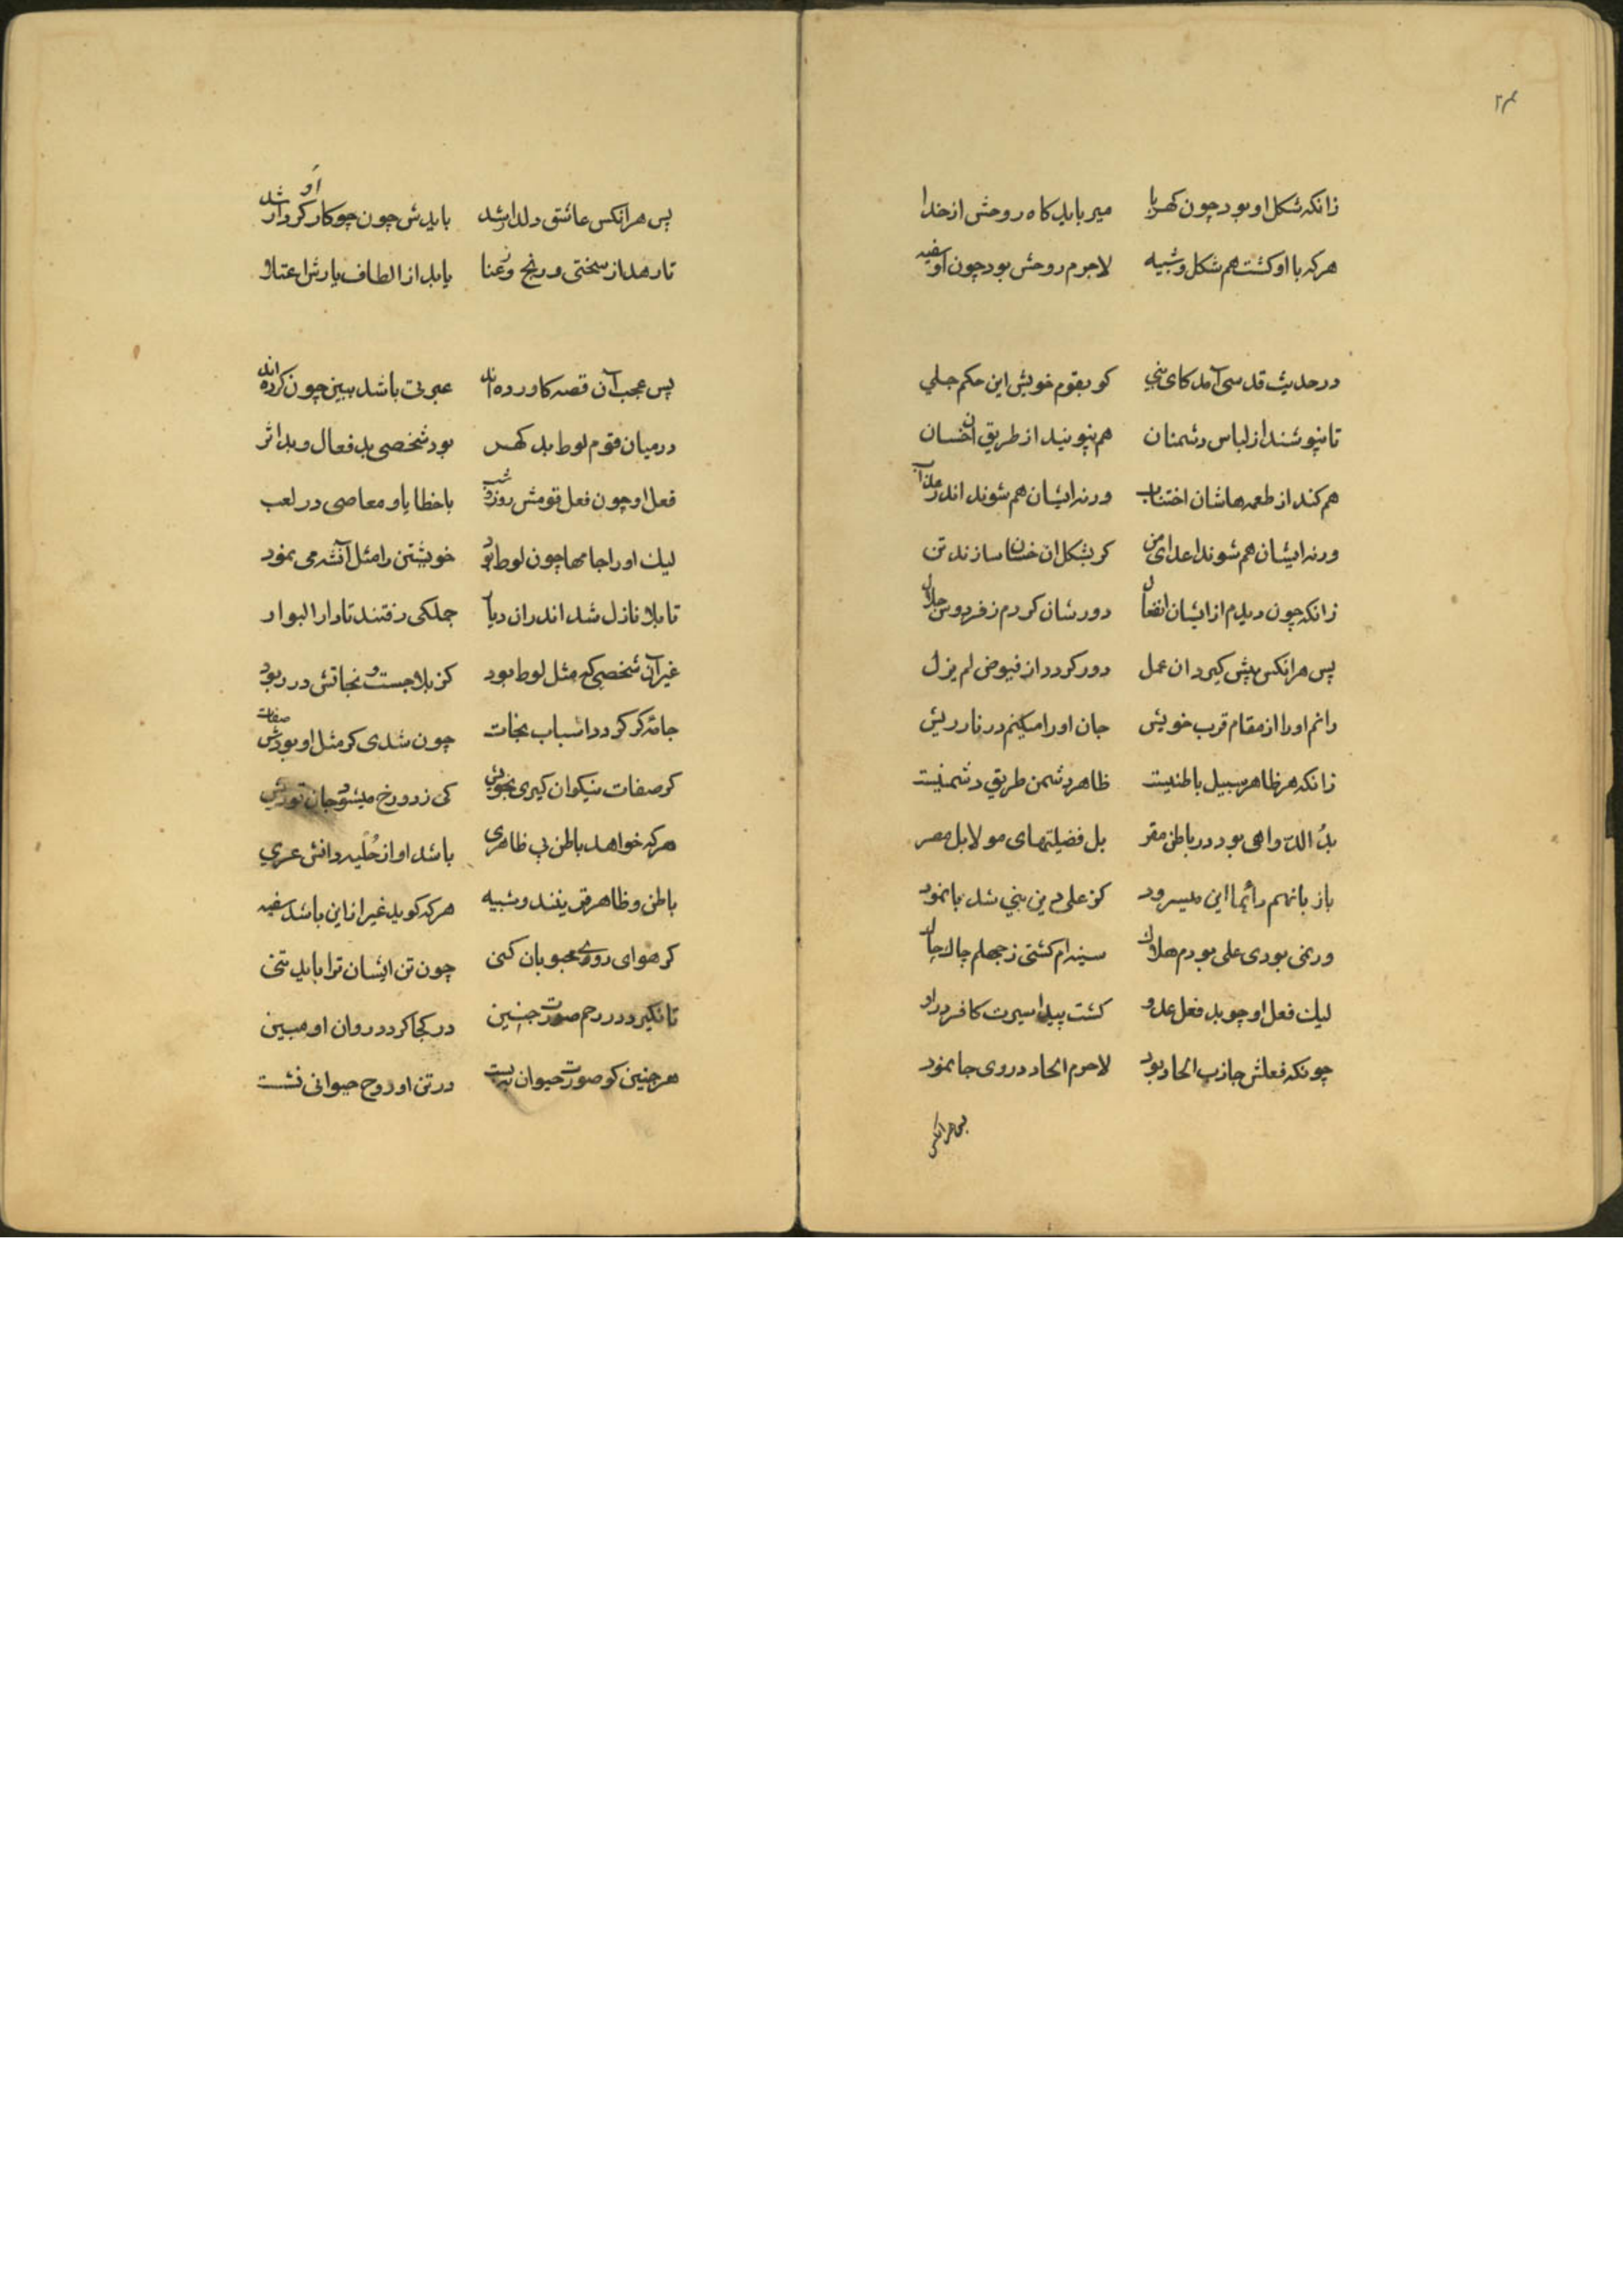 ۲۴
زانکه شکل او بود چون کهربا میرباید کاه روحش از خدا
هرکه با او کشت هم شکل و شبیه لاجرم روحش بود چون او سفیه
در حدیث قدسی آمد کای نبی کو بقوم خویش این حکم جلی
تا نپوشند از لباس دشمنان هم نپویند از طریق آن خسان
هم کنند از طعمه هاشان اختناب ورنه ایشان هم شوند اندر عذاب
ورنه ایشان هم شوند اعدای من کر بشکل ان خسان سازند تن
زانکه چون دیدم از ایشان انفعال دورشان کردم ز فردوس جلال
پس هرانکس پیش کیرد ان عمل دور کردد از فیوض لم یزل
رانم او را از مقام قرب خویش جان او را میکنم در نار ریش
زانکه هر ظاهر سبیل باطنیست ظاهر دشمن طریق دشمنیست
بل الدّ واهی بود در باطن مقر بل فضیلتهای مولا بل مصر
باز بانهم دائما این میسرود کز علی دین نبی شد با نمود
ور نمی بودی علی بودم هلاک سینه ام کشتی ز جهلم چاک چاک
لیک فعل او چو بد فعل عدو کشت پیدا سیرت کافر در او
چونکه فعلش جاذب الحاد بود لاجرم الحاد در وی جا نمود
پس هرانکس
پس هرانکس عاشق دلدار شد بایدش چون چو کار کردار او شد
تا رهد از سختی و رنج و عنا یابد از الطاف یارش اعتلا
پس عجب آن قصه کاورده اند عبرتی باشد ببین چون کرده اند
در میان قوم لوط بد کهر بود شخصی بد فعال و بد اثر
فعل او چون فعل قومش روز و شب با خطایا و معاصی در لعب
لیک او را جامها چون لوط بود خویشتن را مثل آنشه می نمود
تا بلا نازل شد اندر ان دیار جملکی رفتند تا دار البوار
غیر آن شخصی که مثل لوط بود کز بلا جست و نجاتش در ربود
جامه کر کردد اسباب نجات چون شدی کر مثل او بودش صفات
کر صفات نیکوان کیری بخویش کی ز دوزخ میشود جان تو ریش
هرکه خواهد باطن بی ظاهری باشد او از حُلیه دانش عری
باطن و ظاهر قرینند و شبیه هرکه کوید غیر از این باشد سفیه
کر هوای روی محبوبان کنی چون تن ایشان ترا باید تنی
تا نکیرد در رحم صورت جنین در کجا کردد روان او مبین
هر جنین کو صورت حیوان ببست در تن او روح حیوانی نشست